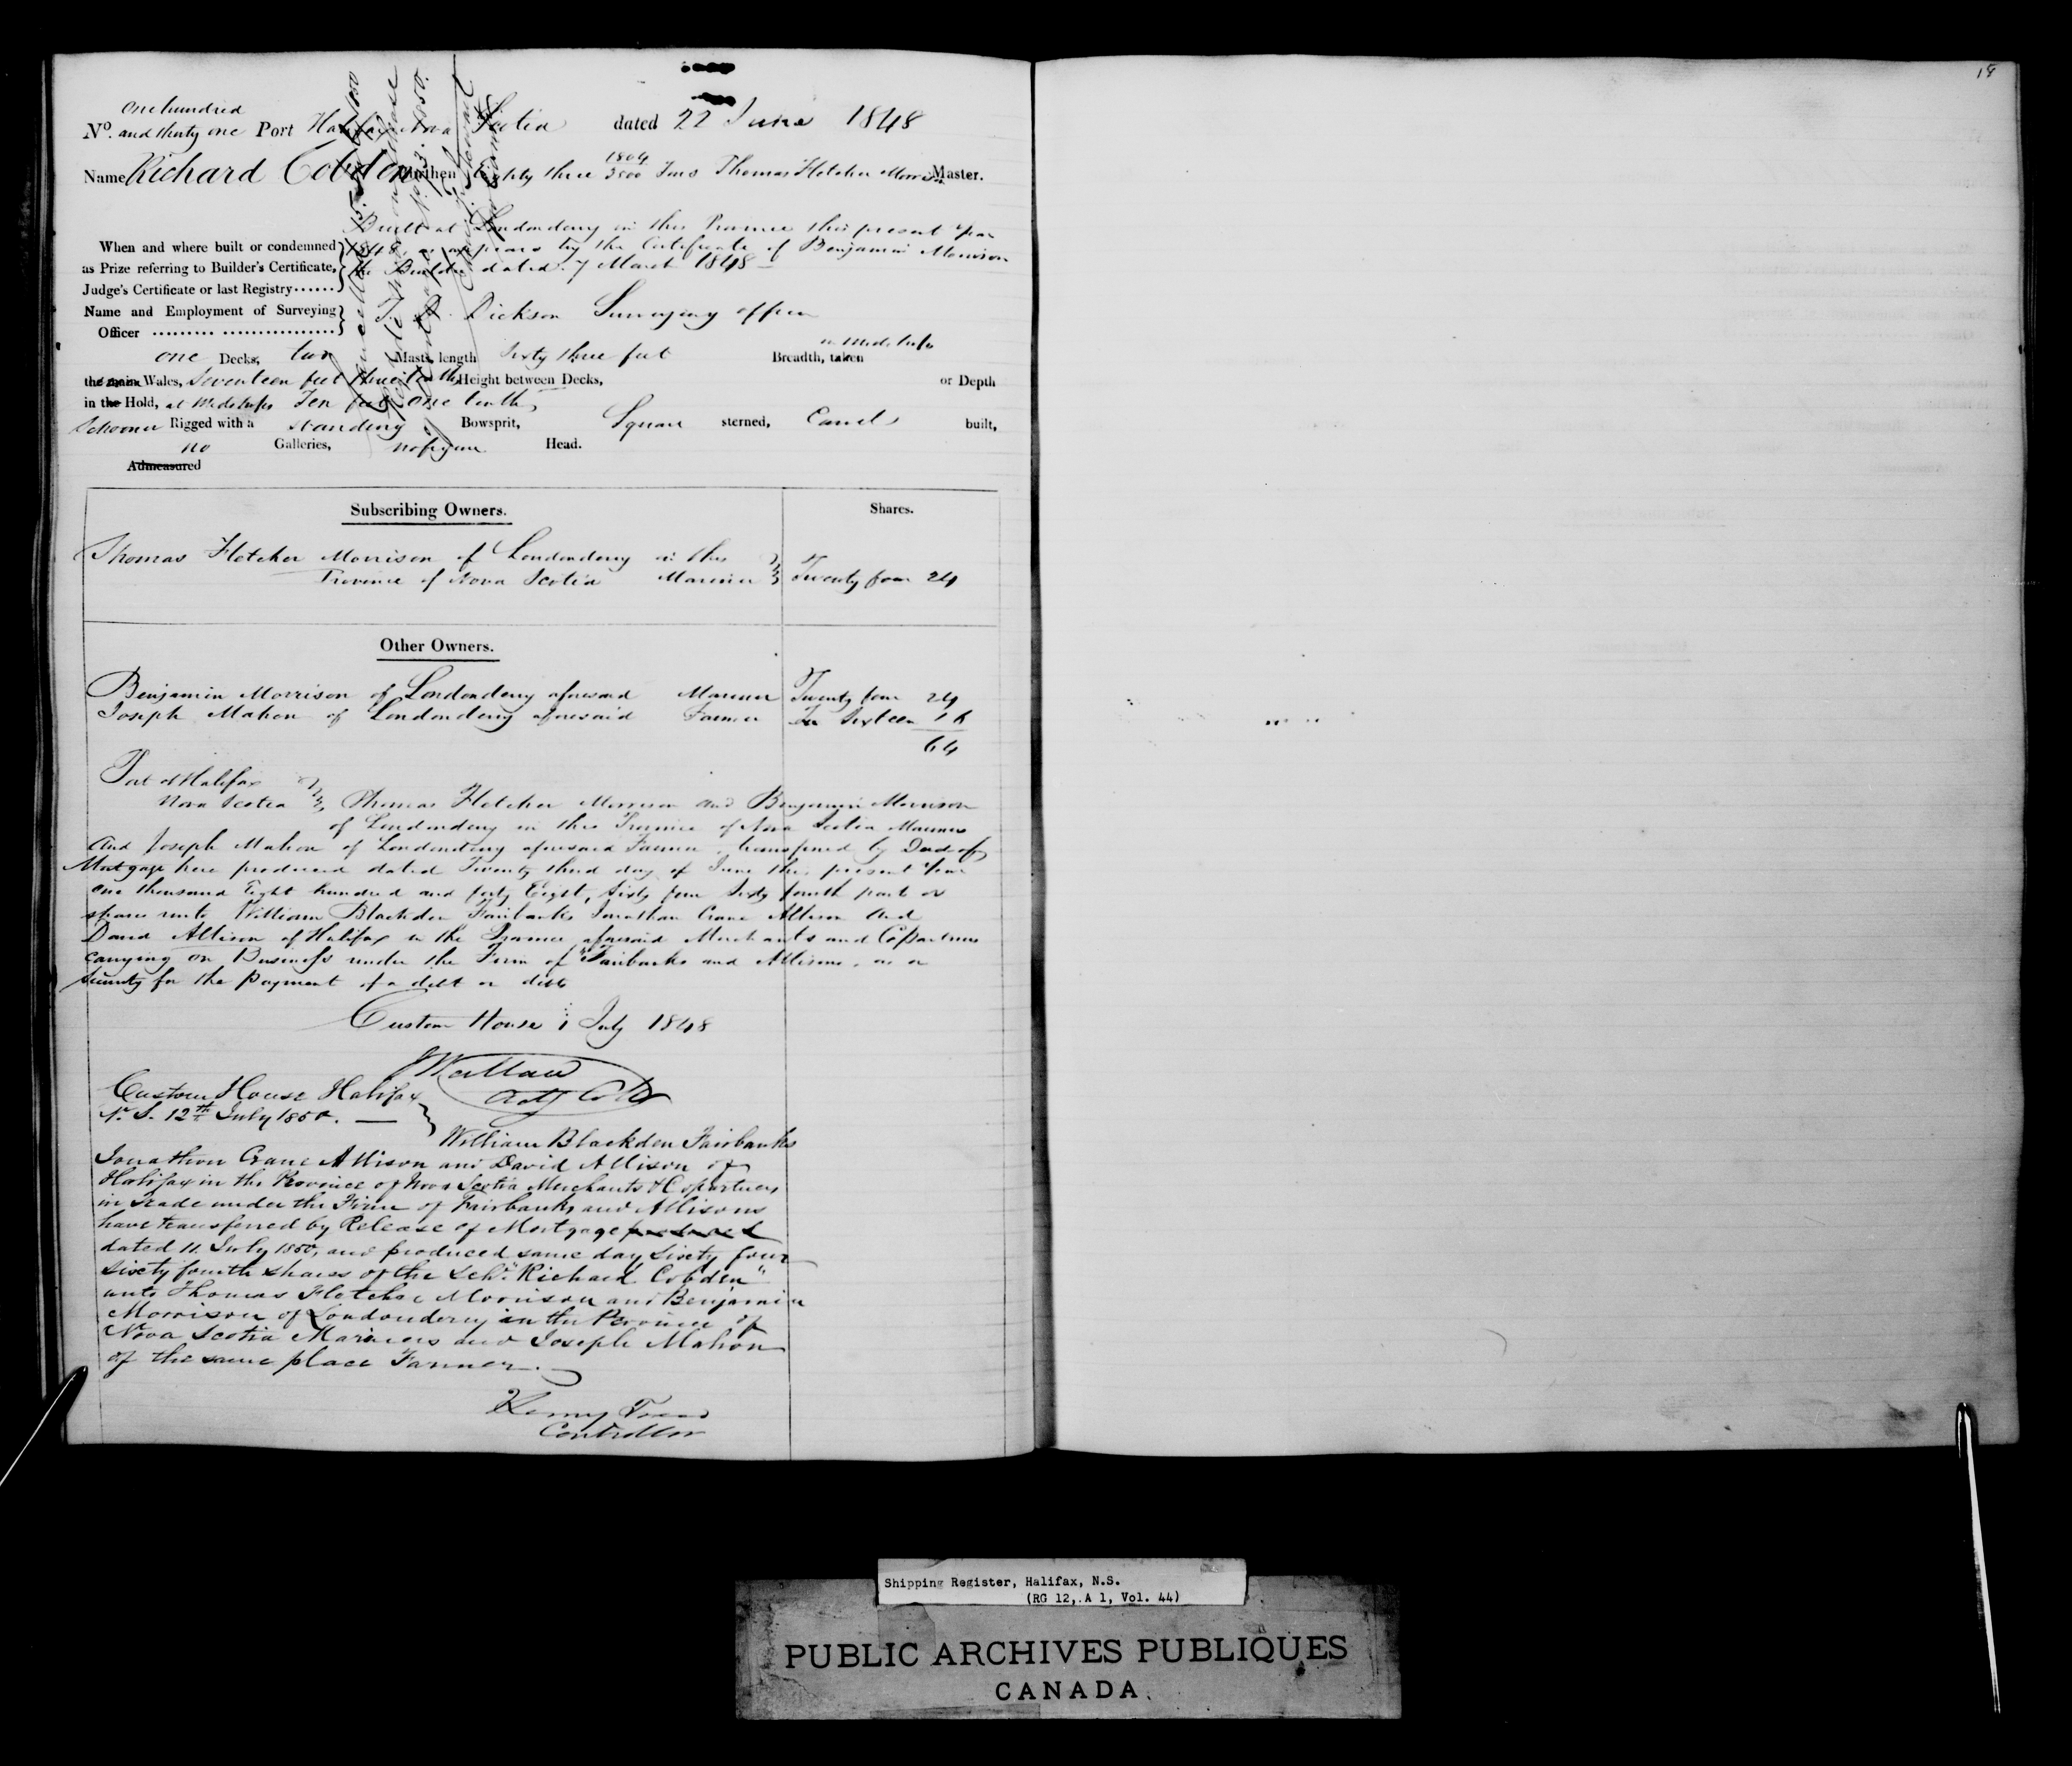 18
one hundred
No. and thirty one Port Halifax Nova Scotia dated 22 June 1848
Name Richard Cobden Burthen Eighty three 1804/3500 Tons Thomas Fletcher Morrison Master.
Built at Londonderry in this Province this present Year
When and where built or condemned 1848, as appears by the Certificate of Benjamin Morrison
as Prize referring to Builder's Certificate, the Builder dated 7 March 1848
Judge's Certificate or last Registry
Name and Employment of Surveying
Officer Dickson Surveying officer
one Decks, two Masts, length Sixty three feet Breadth, taken in Midships
the main Wales, Seventeen feet three tenths Height between Decks, or Depth
in the Hold, at Midships Ten feet one tenth
Schooner Rigged with a standing Bowsprit, Square sterned, Carvel built,
no Galleries, no figure Head.
Admeasured
Subscribing Owners. Shares.
Thomas Fletcher Morrison of Londonderry in this
Province of Nova Scotia Mariner Twenty four 24
Other Owners.
Benjamin Morrison of Londonderry aforesaid Mariner Twenty four 24
Joseph Mahon of Londonderry aforesaid Farmer Sixteen 16
64
Port of Halifax
Nova Scotia Thomas Fletcher Morrison and Benjamin Morrison
of Londonderry in this Province of Nova Scotia Mariners
And Joseph Mahon of Londonderry aforesaid Farmer, transferred by Deed of
Mortgage here produced dated Twenty third day of June this present Year
one thousand Eight hundred and forty Eight, Sixty four Sixty fourth part or
shares unto William Blackden Fairbanks Jonathan Crane Allison and
David Allison of Halifax in the Province aforesaid Merchants and CoPartners
carrying on Business under the Firm of Fairbanks and Allisons, as a
Security for the Payment of a debt or debts
Custom House 1 July 1848
Custom House Halifax
N. S. 12th July 1850.
William Blackden Fairbanks
Jonathan Crane Allison and David Allison of
Halifax in the Province of Nova Scotia Merchants & Copartners
in trade under the Firm of Fairbanks and Allisons
have transferred by Release of Mortgage produced
dated 11 July 1850, and produced same day Sixty four
Sixty fourth shares of the Schr. "Richard Cobden"
unto Thomas Fletcher Morrison and Benjamin
Morrison of Londonderry in the Province of
Nova Scotia Mariners and Joseph Mahon
of the same place Farmer.
Controller
Shipping Register, Halifax, N.S.
(RG 12, A 1, Vol. 44)
PUBLIC ARCHIVES PUBLIQUES
CANADA